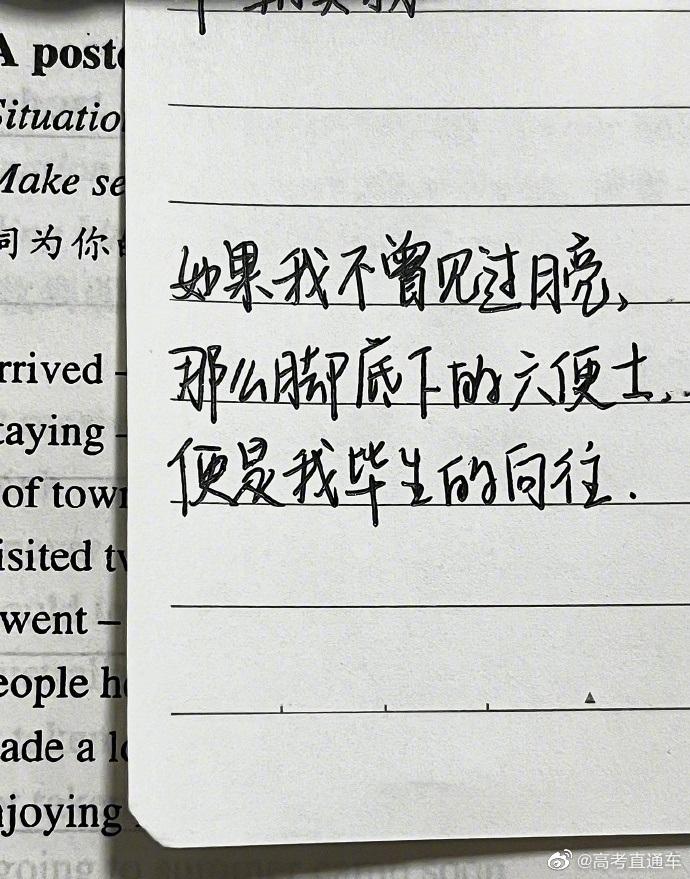 A post
Situatio
Make se
词为你
rrived –
taying –
of town
isited tw
went –
eople h
ade a lo
njoying
going to
如果我不曾见过月亮、
那么脚底下的六便士..
便是我毕生的向往.
@高考直通车